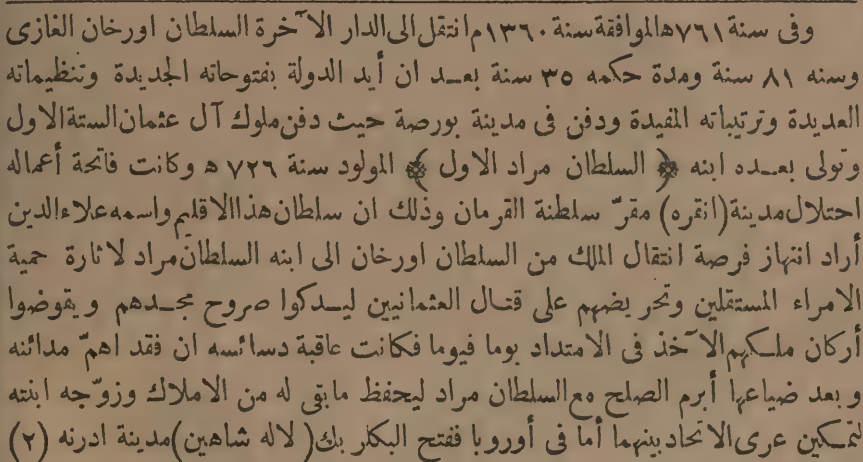 وفى سنة ٧٦١ه الموافقة سنة ١٣٦٠م انتقل الى الدار الآخرة السلطان اورخان الغازى
وسنه ٨١ سنة ومدة حكمه ٣٥ سنة بعد ان أيد الدولة بفتوحاته الجديدة وتنظيماته
العديدة وترتيباته المفيدة ودفن فى مدينة بورصة حيث دفن ملوك آل عثمان الستة الاول
وتولى بعده ابنه ﴿ السلطان مراد الاول ﴾ المولود سنة ٧٢٦ ه وكانت فاتحة أعماله
احتلال مدينة (انقره) مقرّ سلطنة القرمان وذلك ان سلطان هذا الاقليم واسمه علاء الدين
أراد انتهاز فرصة انتقال الملك من السلطان اورخان الى ابنه السلطان مراد لاثارة حمية
الامراء المستقلين وتحريضهم على قتال العثمانيين ليدكوا صروح مجدهم ويقوضوا
أركان ملكهم الآخذ فى الامتداد يوما فيوما فكانت عاقبة دسائسه ان فقد اهمّ مدائنه
وبعد ضياعها أبرم الصلح مع السلطان مراد ليحفظ مابقى له من الاملاك وزوّجه ابنته
لتمكين عرى الاتحاد بينهما أما فى أوروبا ففتح البكلر بك (لاله شاهين) مدينة ادرنه (٢)